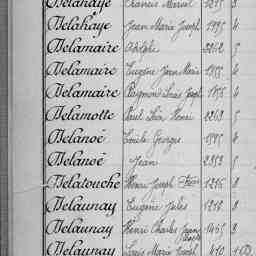 Delahaye Francis Marcel
Delahaye Jean Marie Joseph 1995 4
Delamaire Adolphe 2262 5
Delamaire Eugène Jean Marie 1855 4
Delamaire Raymond Louis Joseph 1856 4
Delamotte Paul Léon Henri 2263 5
Delanoé Emile Georges 1995 4
Delanoé Jean 2353 5
Delatouche Henri Joseph 1216 3
Delaunay Eugène Jules 1218 3
Delaunay Henri Charles Jean 1465 3
Delaunay Louis Marie Joseph 410 1